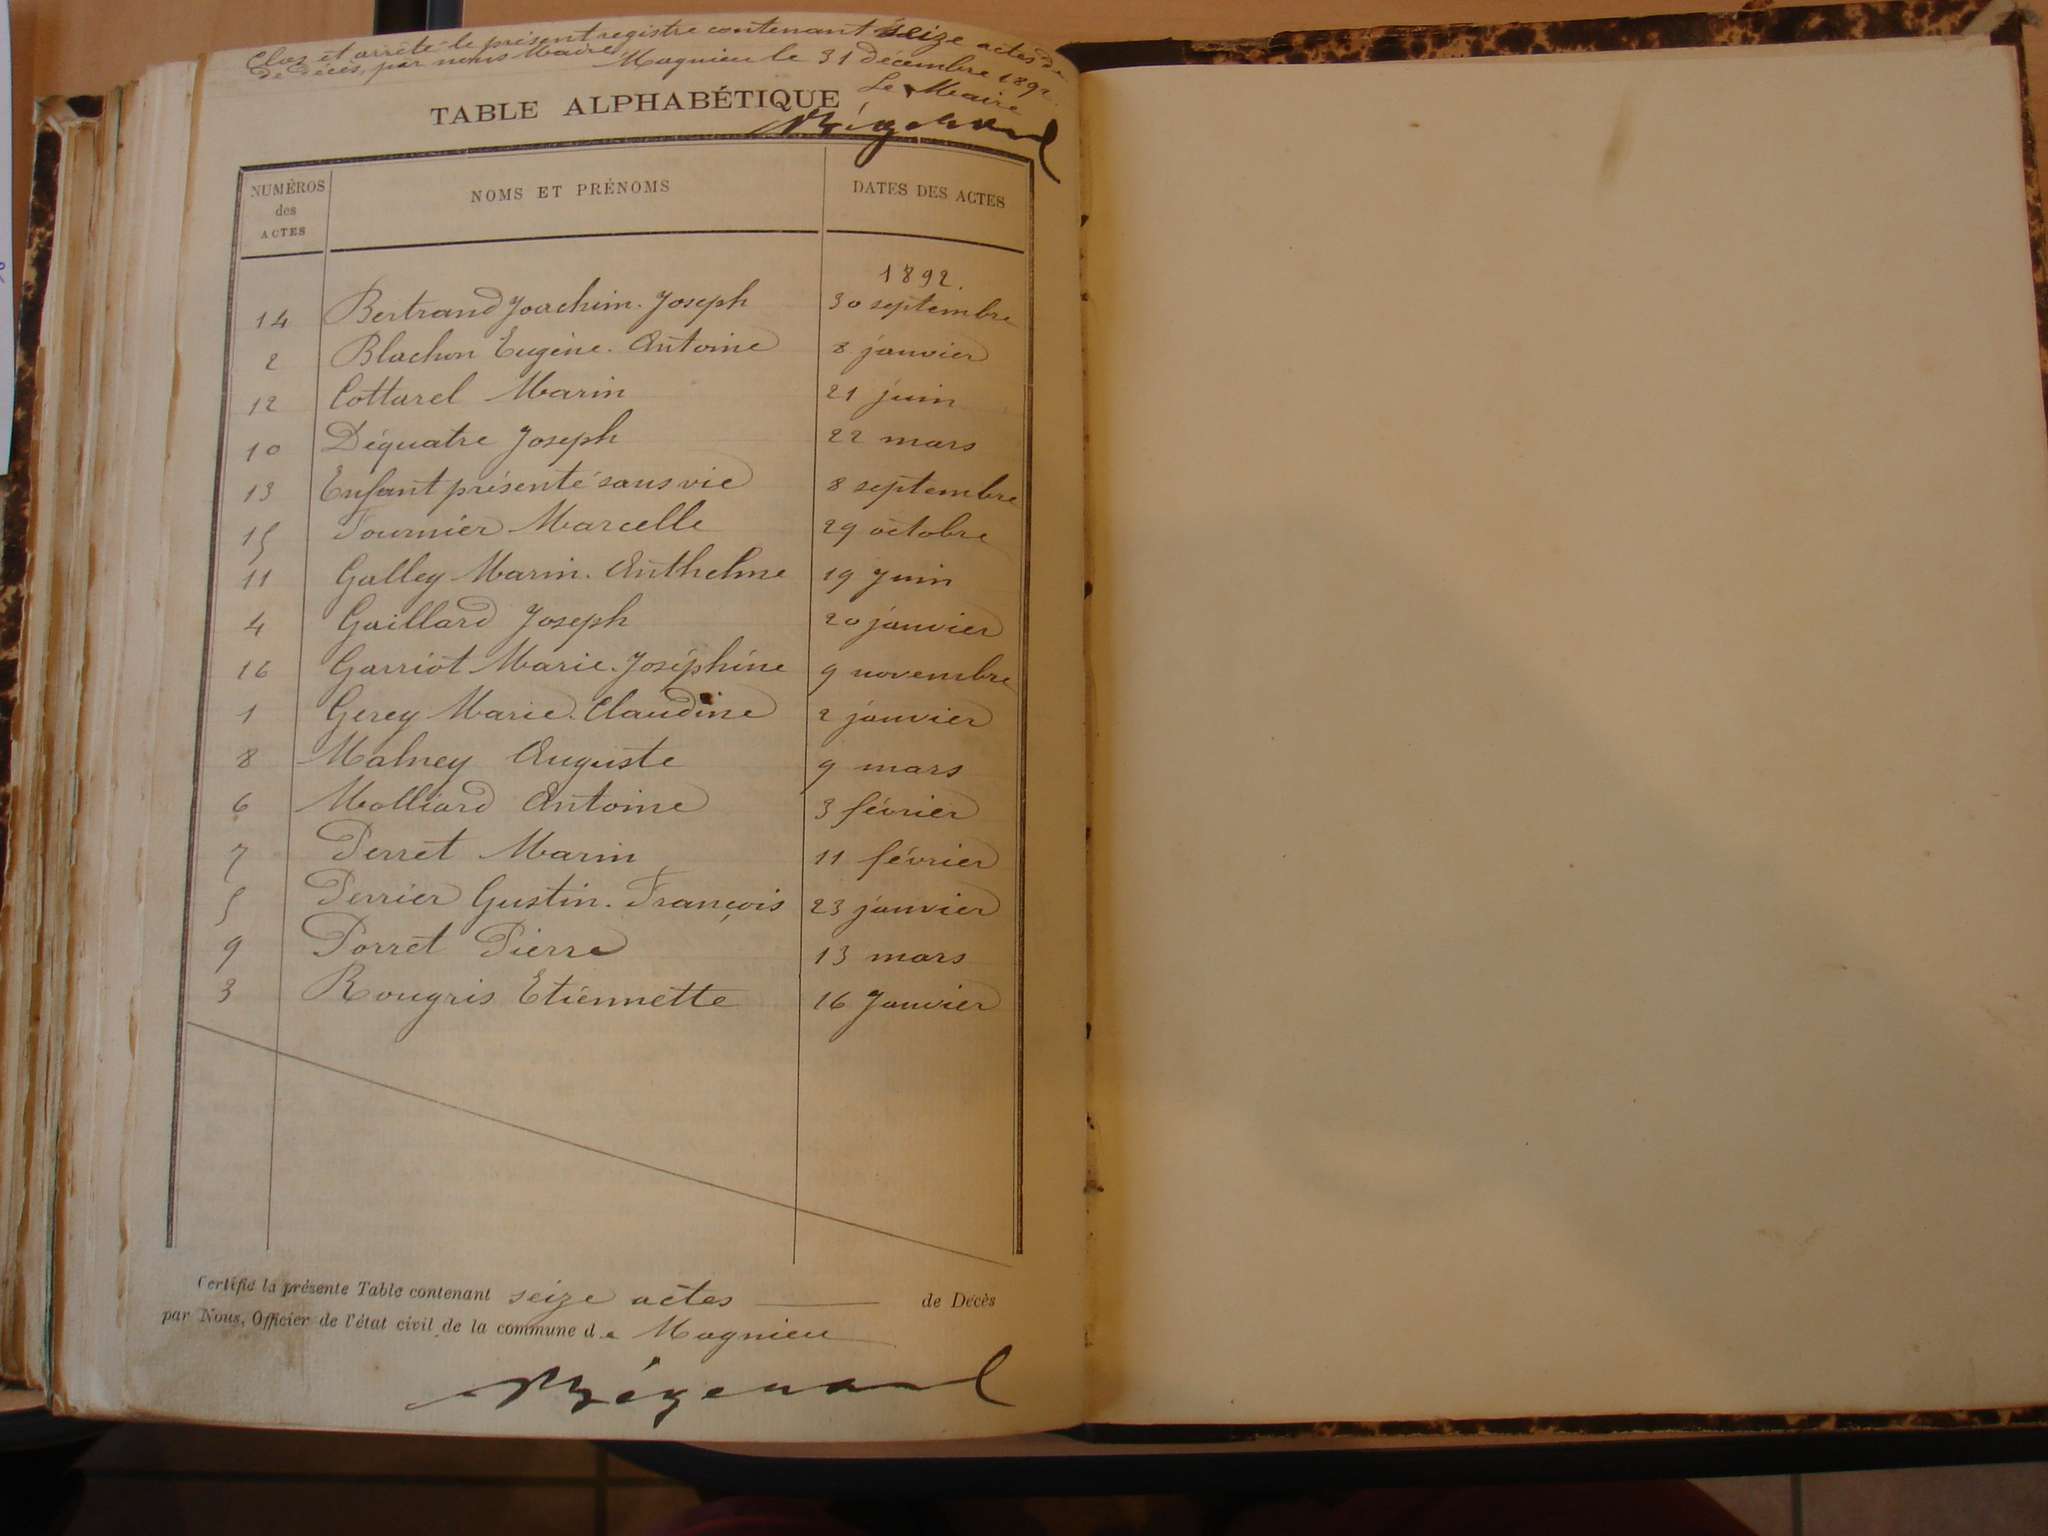 Clos et arrêté le présent registre contenant seize actes de
de décès, par nous Maire, Magnieu le 31 décembre 1892.
Le Maire
TABLE ALPHABÉTIQUE
NUMÉROS des ACTES NOMS ET PRÉNOMS DATES DES ACTES
1892.
14 Bertrand Joachim. Joseph 30 septembre
2 Blachon Eugène. Antoine 8 janvier
12 Cottarel Marin 21 juin
10 Déquatre Joseph 22 mars
13 Enfant présenté sans vie 8 septembre
15 Fournier Marcelle 29 octobre
11 Galley Marin. Anthelme 19 Juin
4 Gaillard Joseph 20 janvier
16 Garriot Marie. Joséphine 9 novembre
1 Gerey Marie. Claudine 2 janvier
8 Malney Auguste 9 mars
6 Molliard Antoine 3 février
7 Perret Marin 11 février
5 Perrier Gustin. François 23 janvier
9 Porret Pierre 13 mars
3 Rougris Etiennette 16 Janvier
Certifié la présente Table contenant seize actes de Décès
par Nous, Officier de l'état civil de la commune de Magnieu